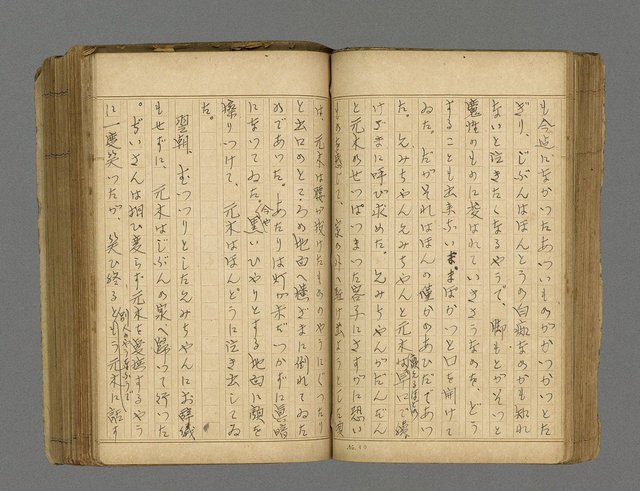 も今迄になかつたあついものがかつかつとた
ぎり、じぶんはほんとうの白痴なのかも知れ
ないと泣きたくなるやうで、脚もとがそつと
魔性のものに奪はれていきさうなのを、どう
することも出来ない。まばかつと口を開けて
ゐた。だがそればほんの僅かのあひだであつ
た。兄みちやん兄みちやんと元木は早口で続
けざまに呼び求めた。兄みちやんがだんだん
と元木のせつぱつまつた容子にさすがに恐い
ものを感じて、家の外へ駈け出ようとした頃
は、元木は腰が抜けたもののやうにぐつたり
と出口のところの地面へ横ざまに倒れてゐた
のであつた。あたりは灯が未だつかずに真暗
になつてゐた。今や黒いひやりとする地面に顔を
擦りつけて、元木はほんどうに泣き出してゐ
た。
翌朝、むつつりとした兄みちやんにお辞儀
もせずに、元木はじぶんの家へ帰つて行つた
。ぢいさんは相ひ変らず元木を愛撫するやう
に一度笑つたが、笑ひ終るともう元木に話す
No. 40